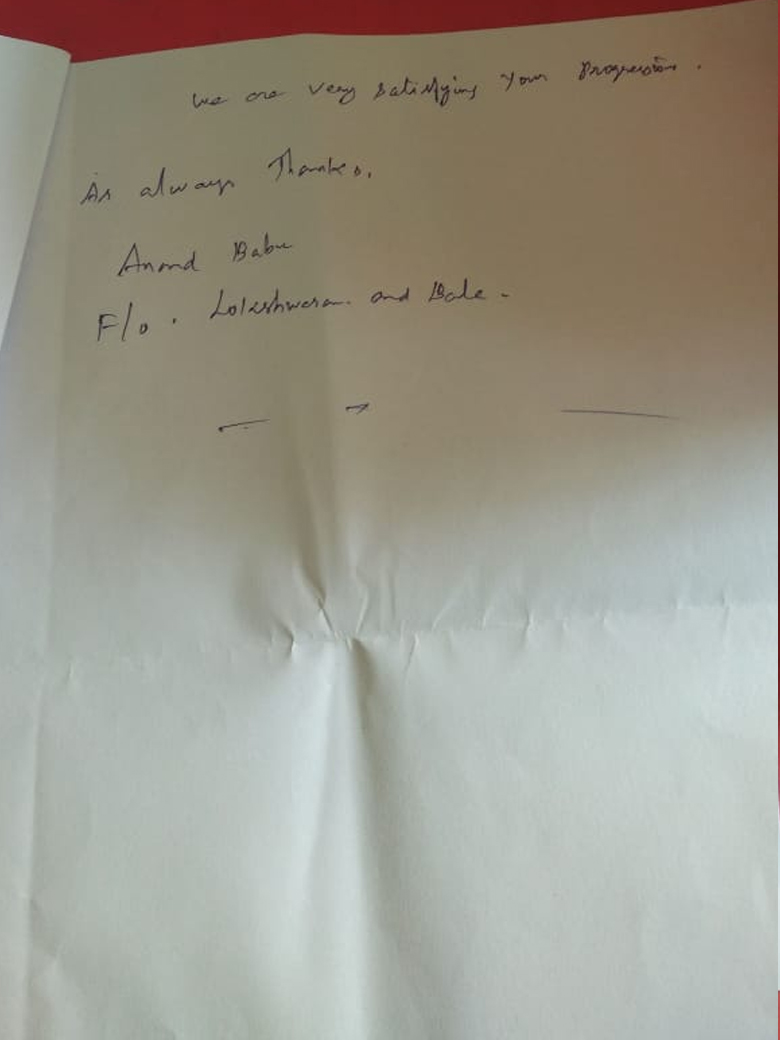 We are very satisfying your progression.
As always Thanks.
Anand Babu
F/o. Lokeshwaran and Bala.